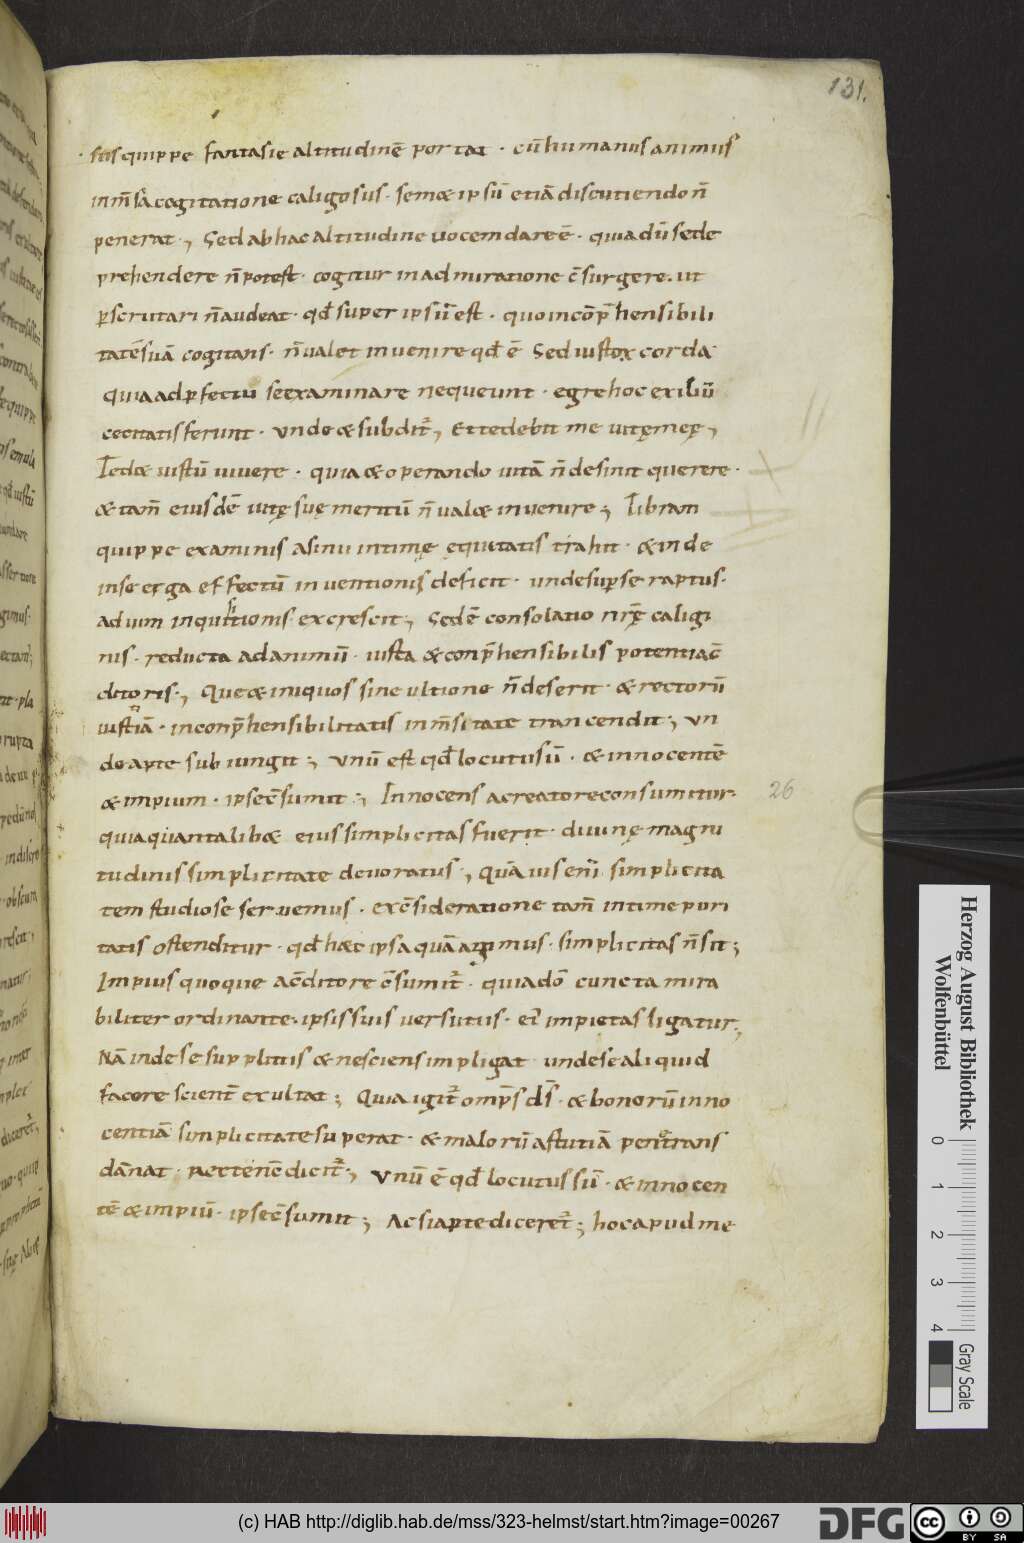 131.
suis quippe fantasie altitudinē portat · cū humanus animus
inm̄sa cogitatione caligosus · semæ ipsū etiā discutiendo n̄
penerat ·, Sed ab hac altitudine uocem dare ē · quia dū se de
prehendere n̄ potest · cogitur in admiratione c̄surgere · ut
ꝑscrutari n̄ audeat · qd̄ super ipsū est · quo incōp̄hensibili
tatē suā cogitans · n̄ ualet inuenire qd̄ ē Sed iustoꝝ corda
quia ad ꝑfectū se examinare nequeunt · egre hoc exiliū
cecitatis ferunt · unde & subdit̄, Et tedebit me uitę meę,
Tedæ iustū uiuere · quia & operando uitā n̄ desinit querere ·
& tam̄ eiusdē uitę suę meritū n̄ ualæ inuenire ; Libram
quippe examinis a sinu intimę equitatis trahit · & inde
in se erga effectū inuentionis deficit · unde suꝑ se raptus ·
ad uim inquisitionis excrescit, Sed ē consolatio nrę̄ caligi
nis · reducta ad animū · iusta & conp̄hensibilis potentia c̄
ditoris ·, Que & iniquos sine ultione n̄ deserit · & rectorū
iustitiā · inconp̄hensibilitatis inm̄sitate trancendit ; un
de aꝑte subiungit ; Unū est qd̄ locutus sū · & innocentē
& impium · ipse c̄sumit ; Innocens a creatore consumitur ·
quia quantalibæ eius simplicitas fuerit · diuinę magni
tudinis simplicitate deuoratus ·, Quāuis eni simplicita
tem studiose seruemus · ex c̄sideratione tam̄ intime puri
tatis ostenditur · qd̄ hæc ipsa quā agimus · simplicitas n̄ sit ;
Impius quoque a c̄ditore c̄sumit̄ · quia dō cuncta mira
biliter ordinante · ipsis suis uersutiis · ei impietas ligatur ;
Nā inde se supplitiis & nesciens impligat unde se aliquid
facere scient̄ exultat ; Quia igit̄ omp̄s ds̄ · & bonorū inno
centiā simplicitate superat · & malorū astutiā penetrans
dānat · Recte nc̄ dicit̄ ·, Unū ē qd̄ locutus sū · & innocen
tē & impiū · ipse c̄sumit ; Ac si aꝑte diceret̄ ; hoc apud me
26
Herzog August Bibliothek
Wolfenbüttel
0 1 2 3 4
Gray Scale
(c) HAB http://diglib.hab.de/mss/323-helmst/start.htm?image=00267
DFG
cc BY SA